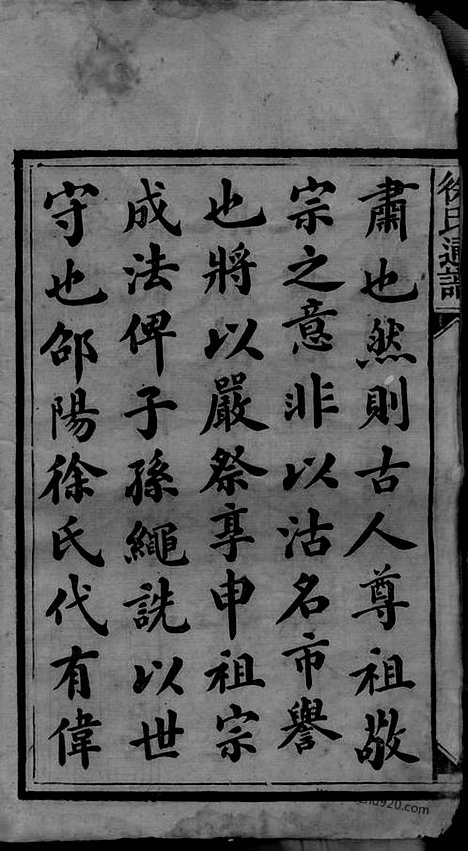 徐氏通譜
肅也然則古人尊祖敬
宗之意非以沽名市譽
也將以嚴祭享申祖宗
成法俾子孫繩詵以世
守也邵陽徐氏代有偉